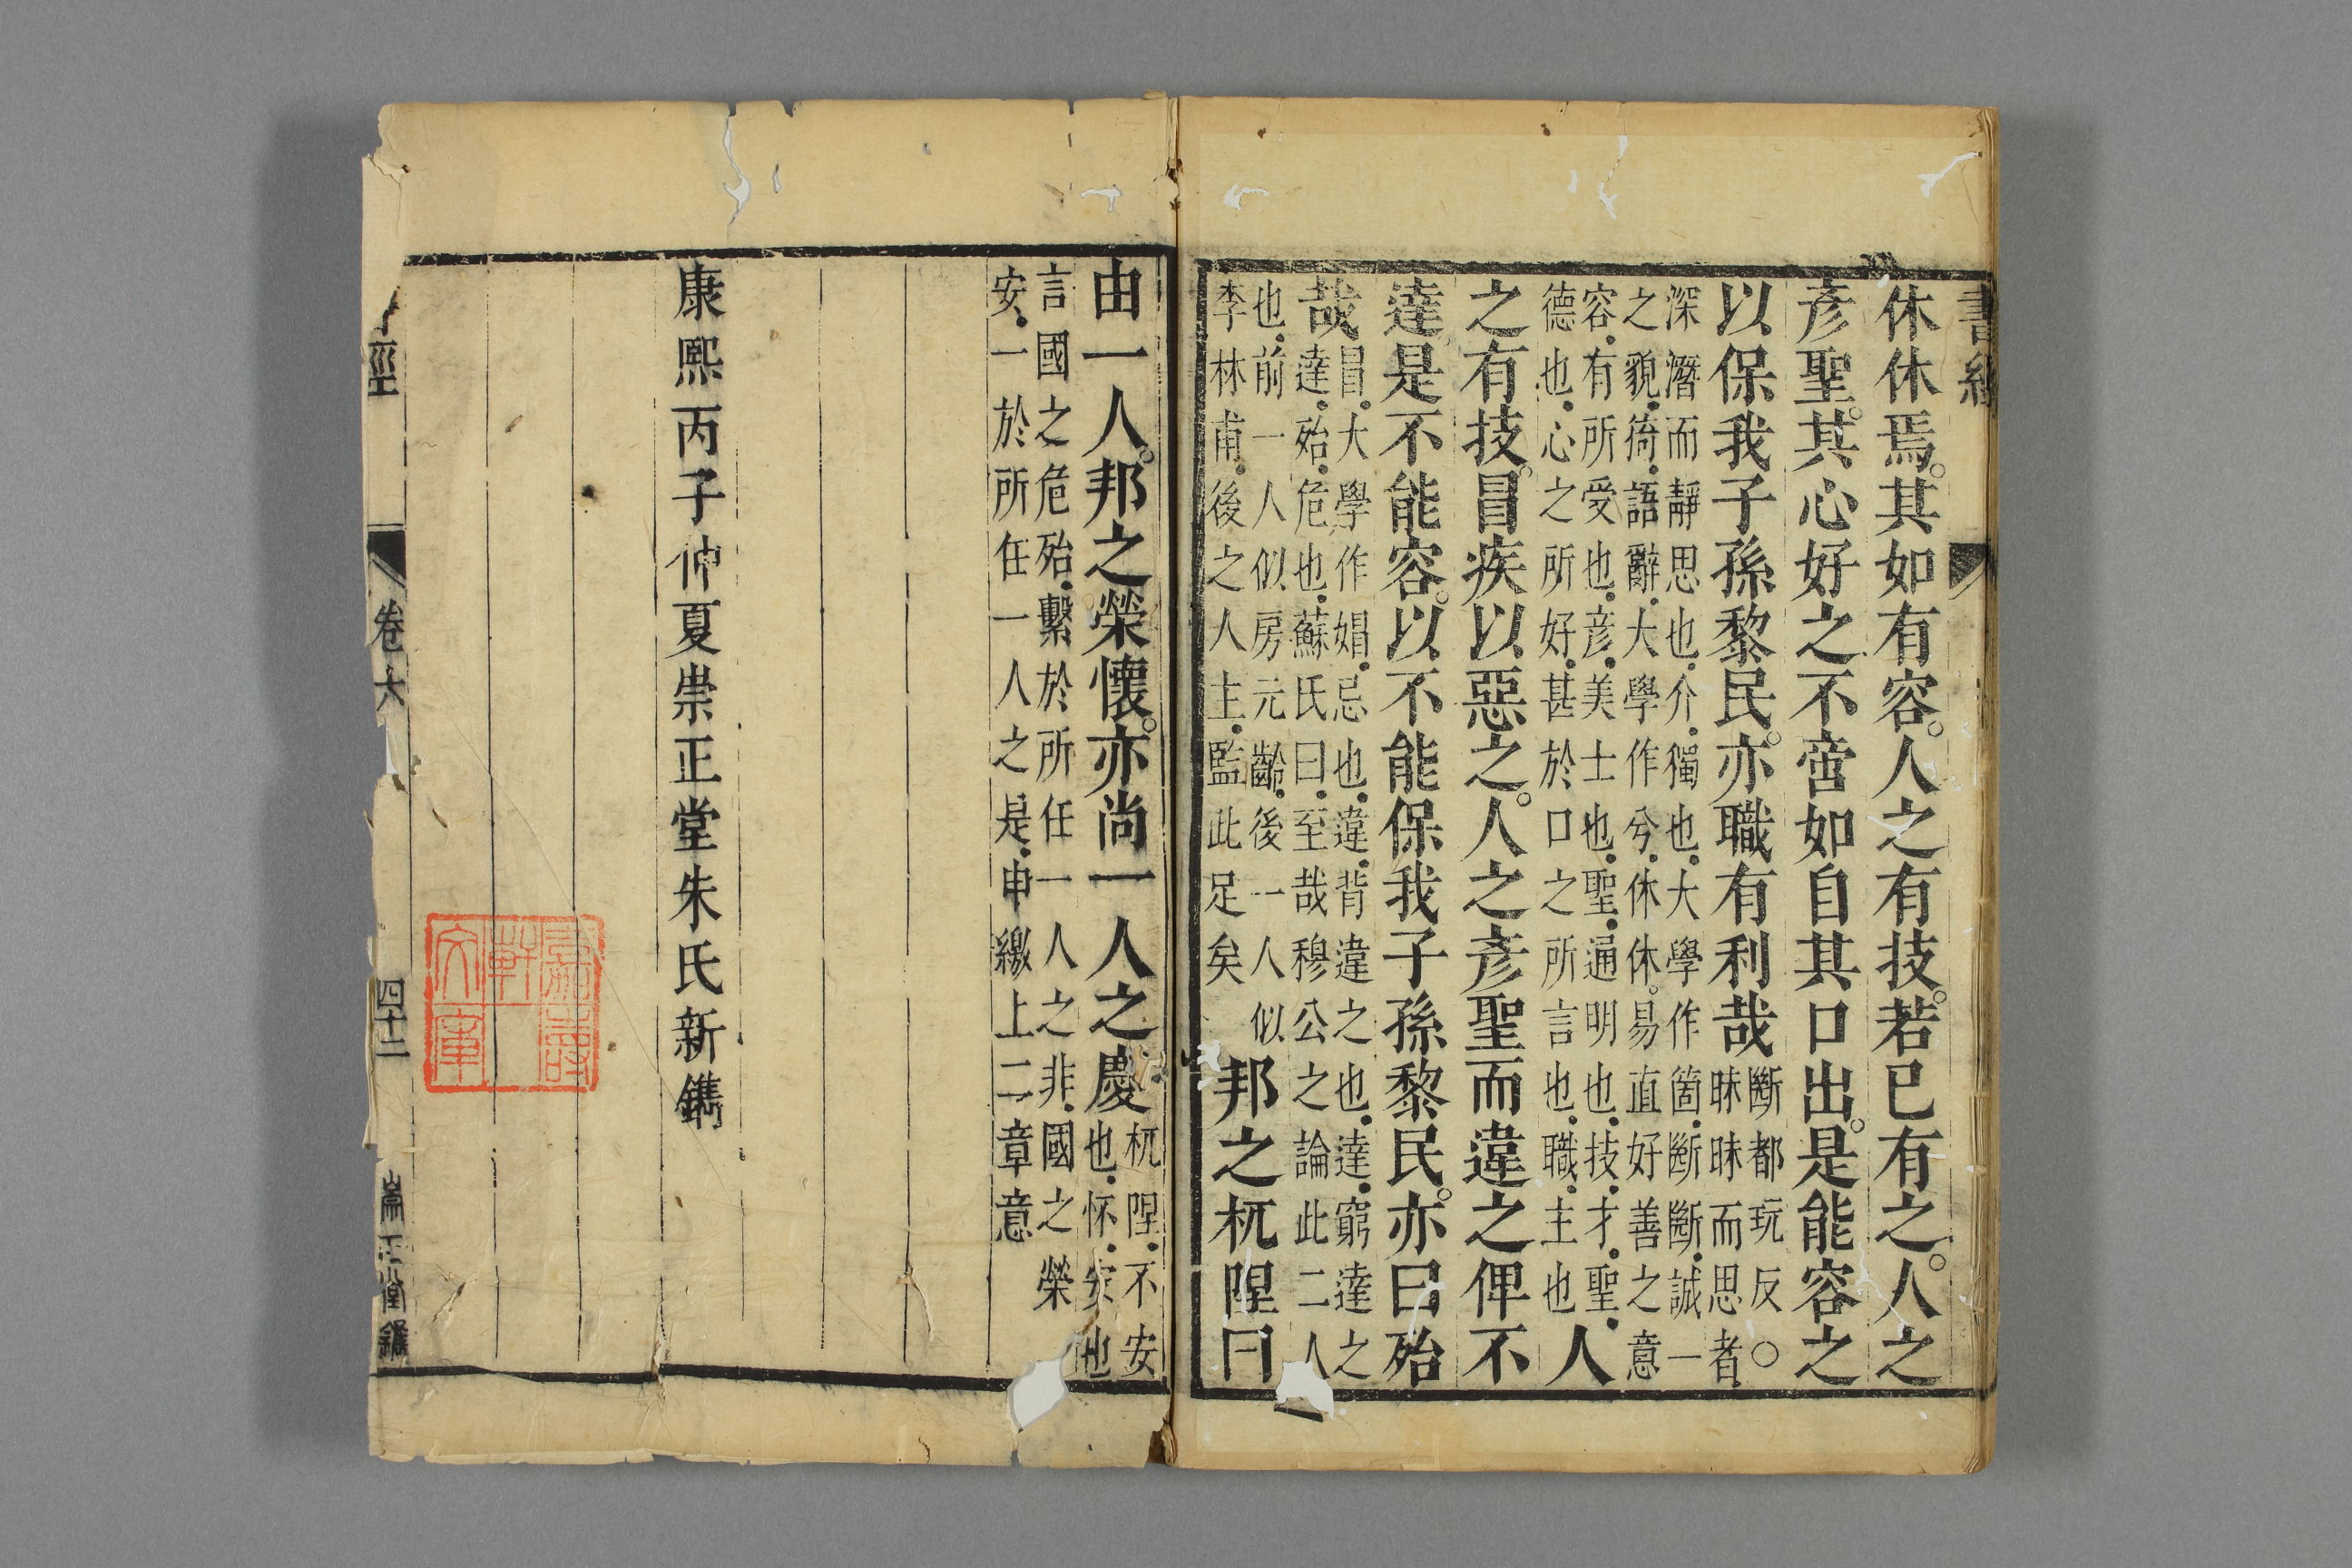 書經
休休焉。其如有容。人之有技。若已有之。人之
彥聖。其心好之。不啻如自其口出。是能容之
以保我子孫黎民。亦職有利哉
斷都玩反○
昧昧而思者.
深潛而靜思也.介.獨也.大學作箇.斷斷.誠一
之貌.猗.語辭.大學作兮.休休。易直好善之意
容.有所受也.彥.美士也.聖.通明也.技.才.聖.
德也.心之所好.甚於口之所言也.職.主也
人
之有技。冒疾以惡之。人之彥聖而違之俾不
達是不能容。以不能保我子孫黎民。亦曰殆
哉
冒.大學作媢.忌也.違.背違之也.達.窮達之
達.殆.危也.蘇氏曰.至哉穆公之論此二人
也.前一人似房元齡.後一人似
李林甫.後之人主.監此足矣
邦之杌隉曰
由一人。邦之榮懷。亦尚一人之慶
杌隉.不安
也.怀.安也
言國之危殆.繫於所任一人之非.國之榮
安.一於所任一人之是.申繳上二章意
康熙丙子仲夏崇正堂朱氏新鐫
經
卷六
四十三
崇正堂鐫
嘉壽
軒
文庫